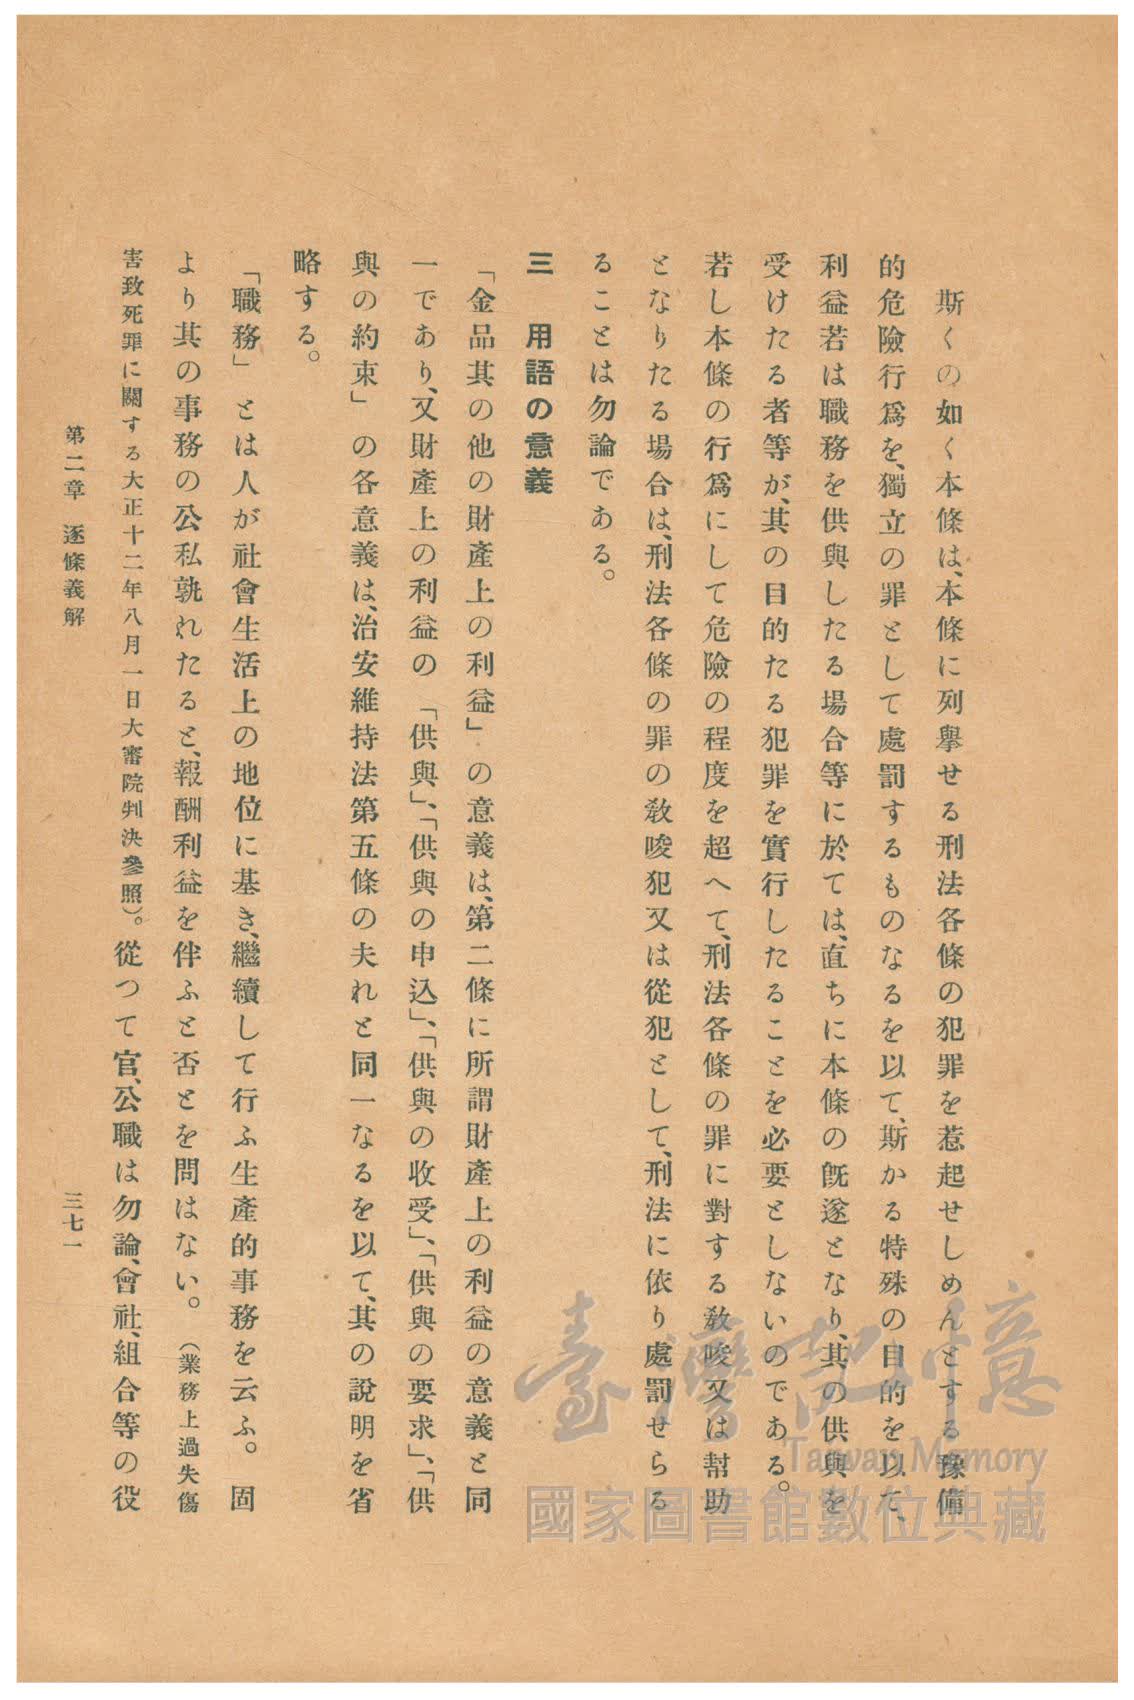 斯くの如く本條は、本條に列擧せる刑法各條の犯罪を惹起せしめんとする豫備
的危險行爲を、獨立の罪として處罰するものなるを以て、斯かる特殊の目的を以て、
利益若は職務を供與したる場合等に於ては、直ちに本條の既遂となり、其の供與を
受けたる者等が、其の目的たる犯罪を實行したることを必要としないのである。
若し本條の行爲にして危險の程度を超へて、刑法各條の罪に對する敎唆又は幇助
となりたる場合は、刑法各條の罪の敎唆犯又は從犯として、刑法に依り處罰せらる
ることは勿論である。
三 用語の意義
「金品其の他の財產上の利益」の意義は、第二條に所謂財產上の利益の意義と同
一であり、又財產上の利益の「供與」、「供與の申込」、「供與の收受」、「供與の要求」、「供
與の約束」の各意義は、治安維持法第五條の夫れと同一なるを以て、其の說明を省
略する。
「職務」とは人が社會生活上の地位に基き、繼續して行ふ生產的事務を云ふ。固
より其の事務の公私孰れたると、報酬利益を伴ふと否とを問はない。(業務上過失傷
害致死罪に關する大正十二年八月一日大審院判決參照)。從つて官、公職は勿論、會社、組合等の役
第二章 逐條義解
三七一
臺灣記憶
Taiwan Memory
國家圖書館數位典藏